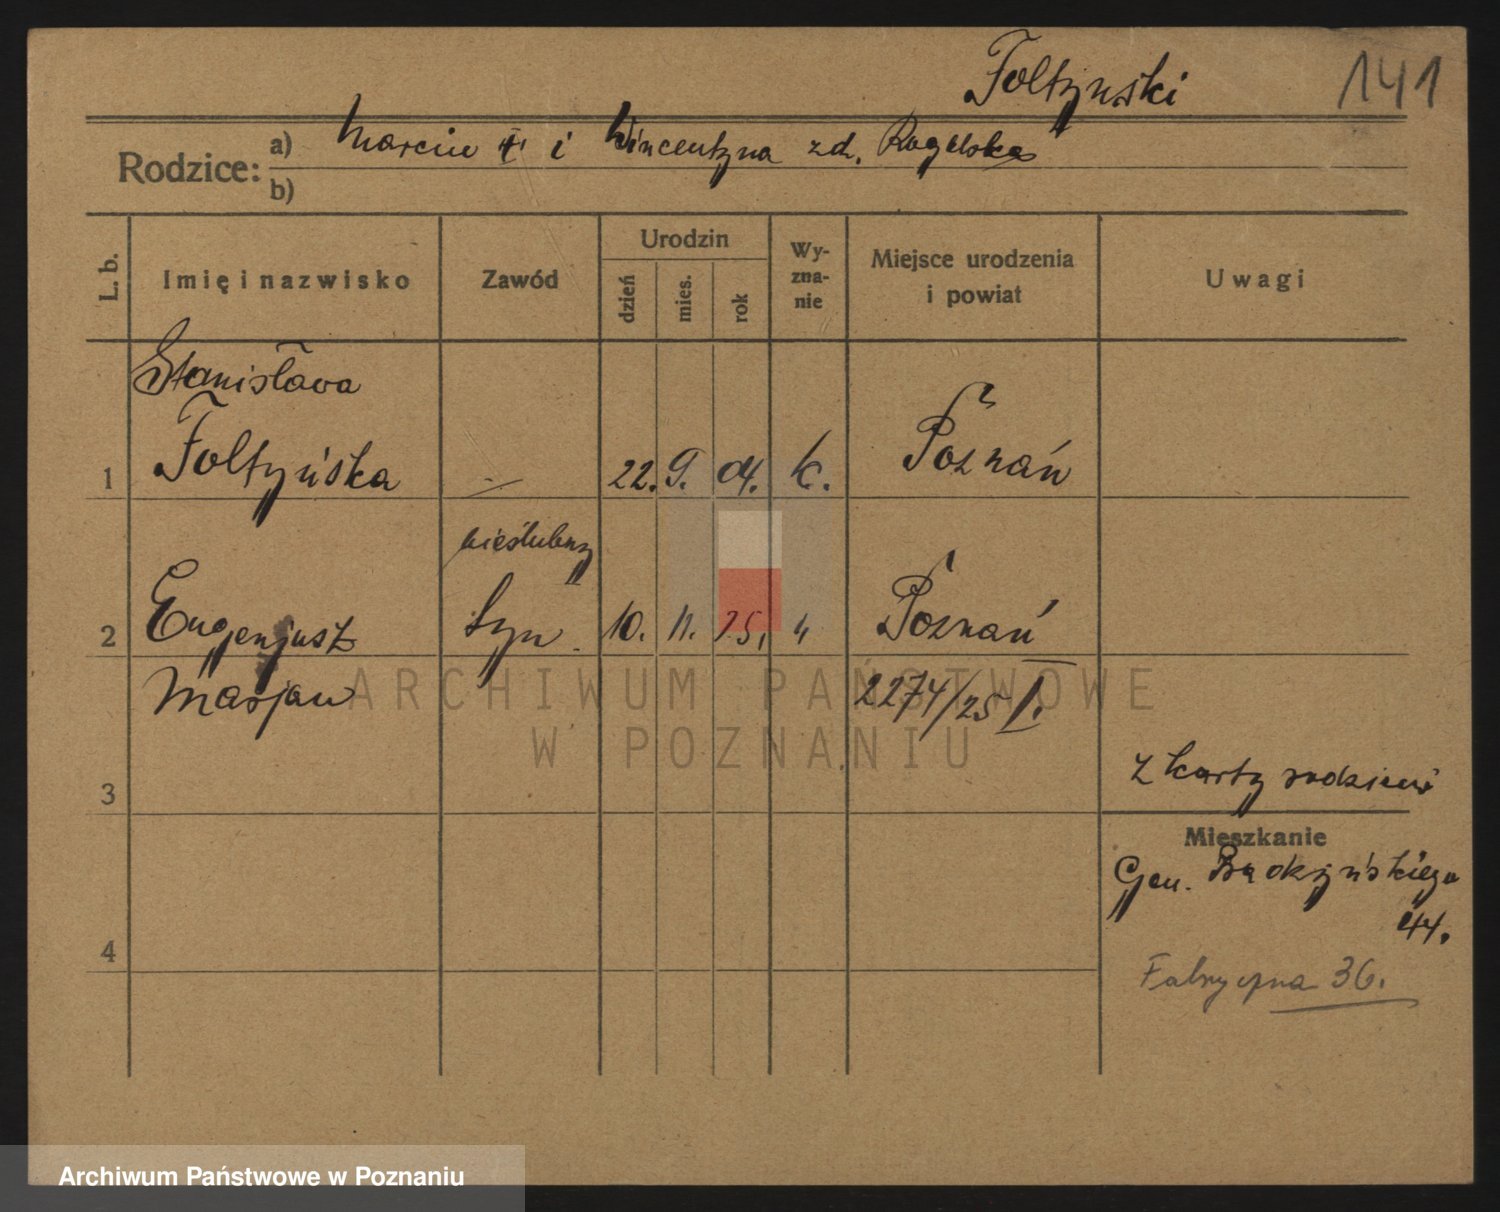 Foltynski 141
Rodzice: a) Marcin † i Wincentyna zd. Rogalska
b)
L. b. Imię i nazwisko Zawód Urodzin dzień mies. rok Wyznanie Miejsce urodzenia i powiat Uwagi
Stanisława
1 Foltyńska — 22. 9. 04. k. Poznań
nieślubny
2 Eugenjusz Syn 10. 11. 25. " Poznań
Marjan 2274/25 I.
3 z karty rodziców
Mieszkanie
Gen. Prądzyńskiego
44.
4 Fabryczna 36.
ARCHIWUM PAŃSTWOWE
W POZNANIU
Archiwum Państwowe w Poznaniu